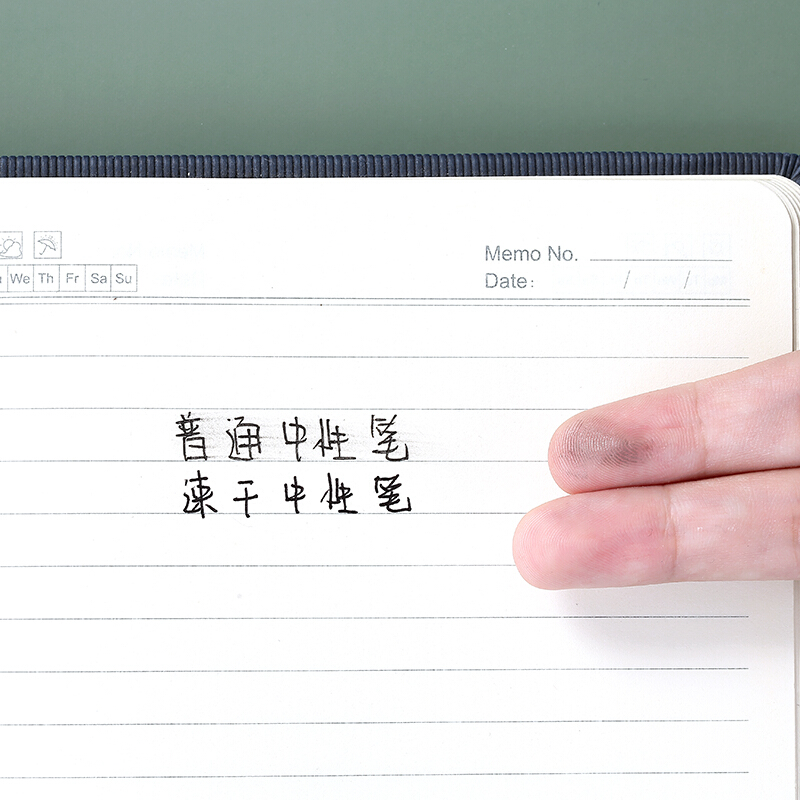 Memo No.
We Th Fr Sa Su
Date: / /
普通中性笔
速干中性笔